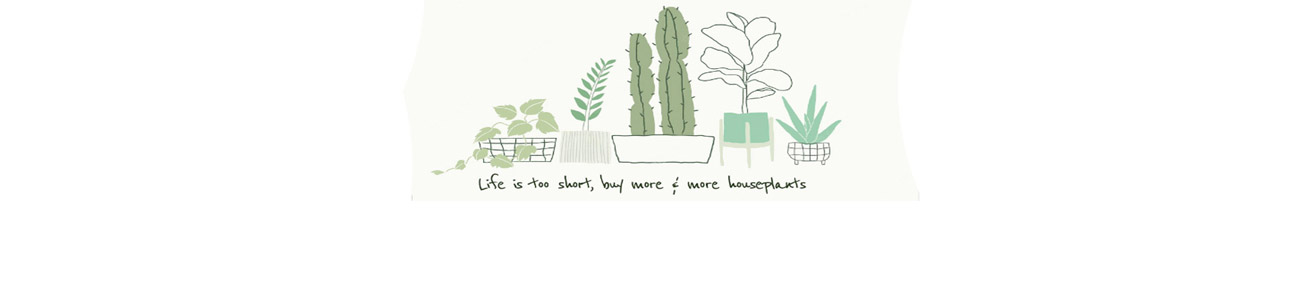 Life is too short, buy more & more houseplants